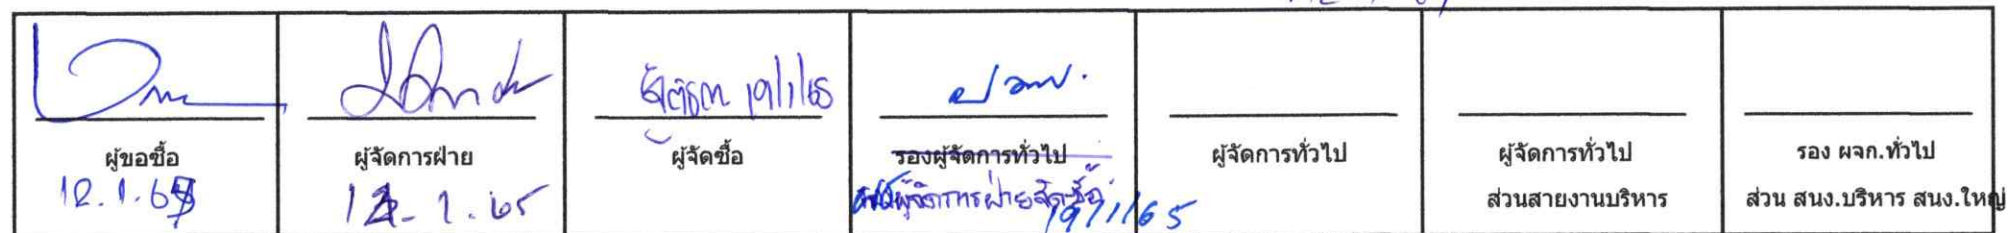 19/1/65
ผู้ขอซื้อ
12.1.65
ผู้จัดการฝ่าย
12.1.65
ผู้จัดซื้อ
รองผู้จัดการทั่วไป
ผู้จัดการฝ่ายจัดซื้อ
19/1/65
ผู้จัดการทั่วไป
ผู้จัดการทั่วไป
ส่วนสายงานบริหาร
รอง ผจก.ทั่วไป
ส่วน สนง.บริหาร สนง.ใหญ่